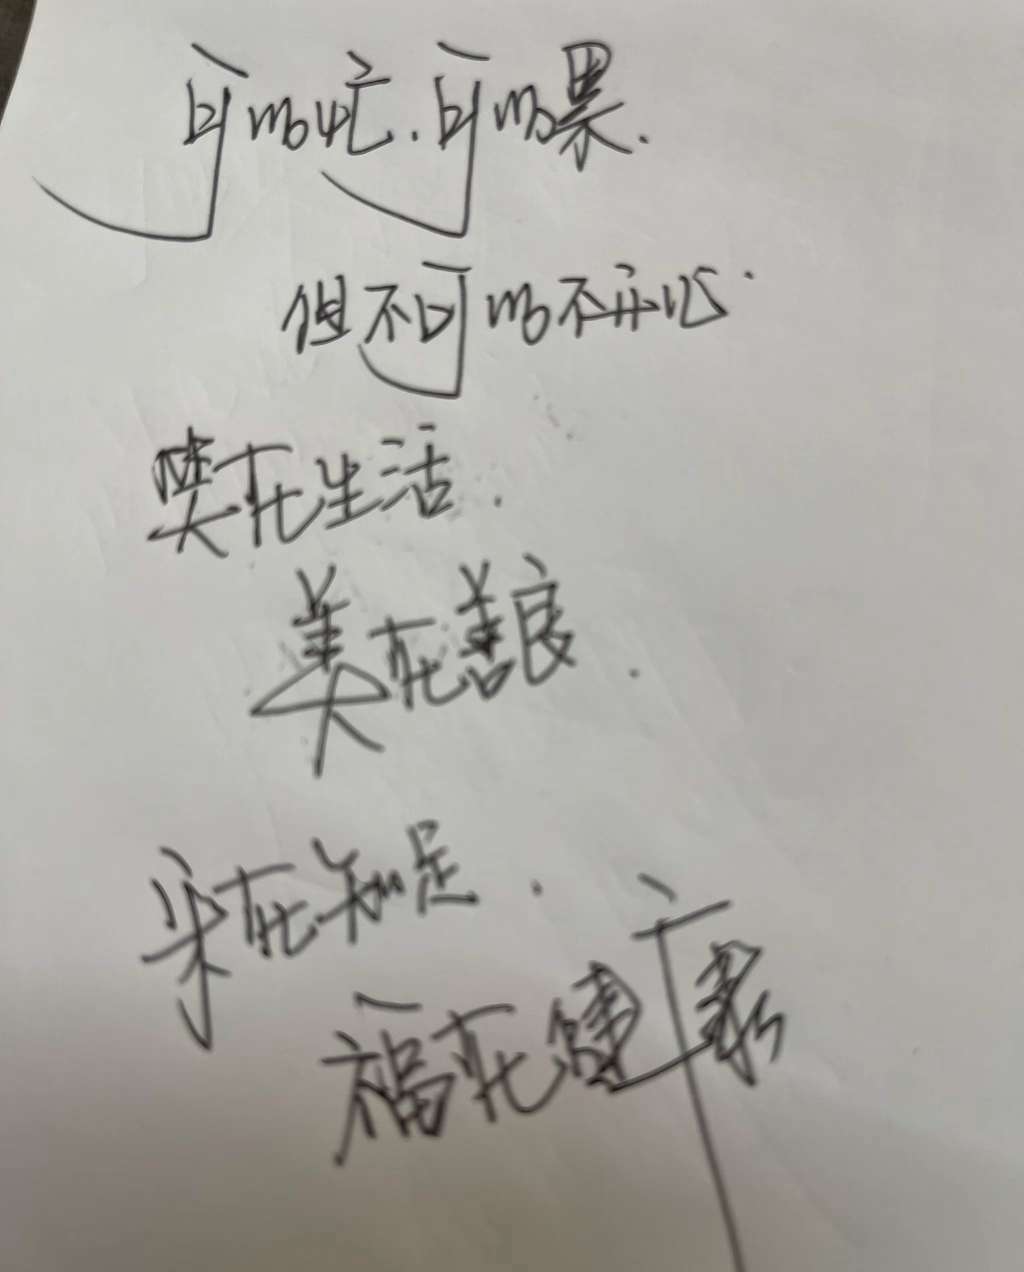 可以忙.可以累.
但不可以不开心.
在生活.
美在善良.
乐在知足.
福在健康